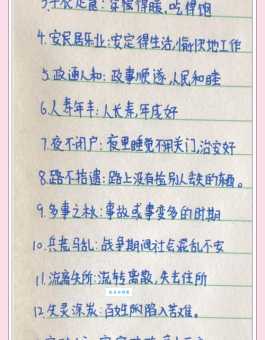 3.丰衣足食:穿得暖,吃得饱
4.安民居乐业:安定得生活,愉快地工作
5.政通人和:政事顺遂,人民和睦
6.人寿年丰:人长寿,年成好
7.夜不闭户:夜里睡觉不用关门,治安好
8.路不拾遗:路上没有捡别人丢失的东西。
9.多事之秋:事故或事变多的时期
10.兵荒马乱:战争期间社会混乱不安
11.流离失所:流转离散,失去住所
12.生灵涂炭:百姓们陷入苦难。